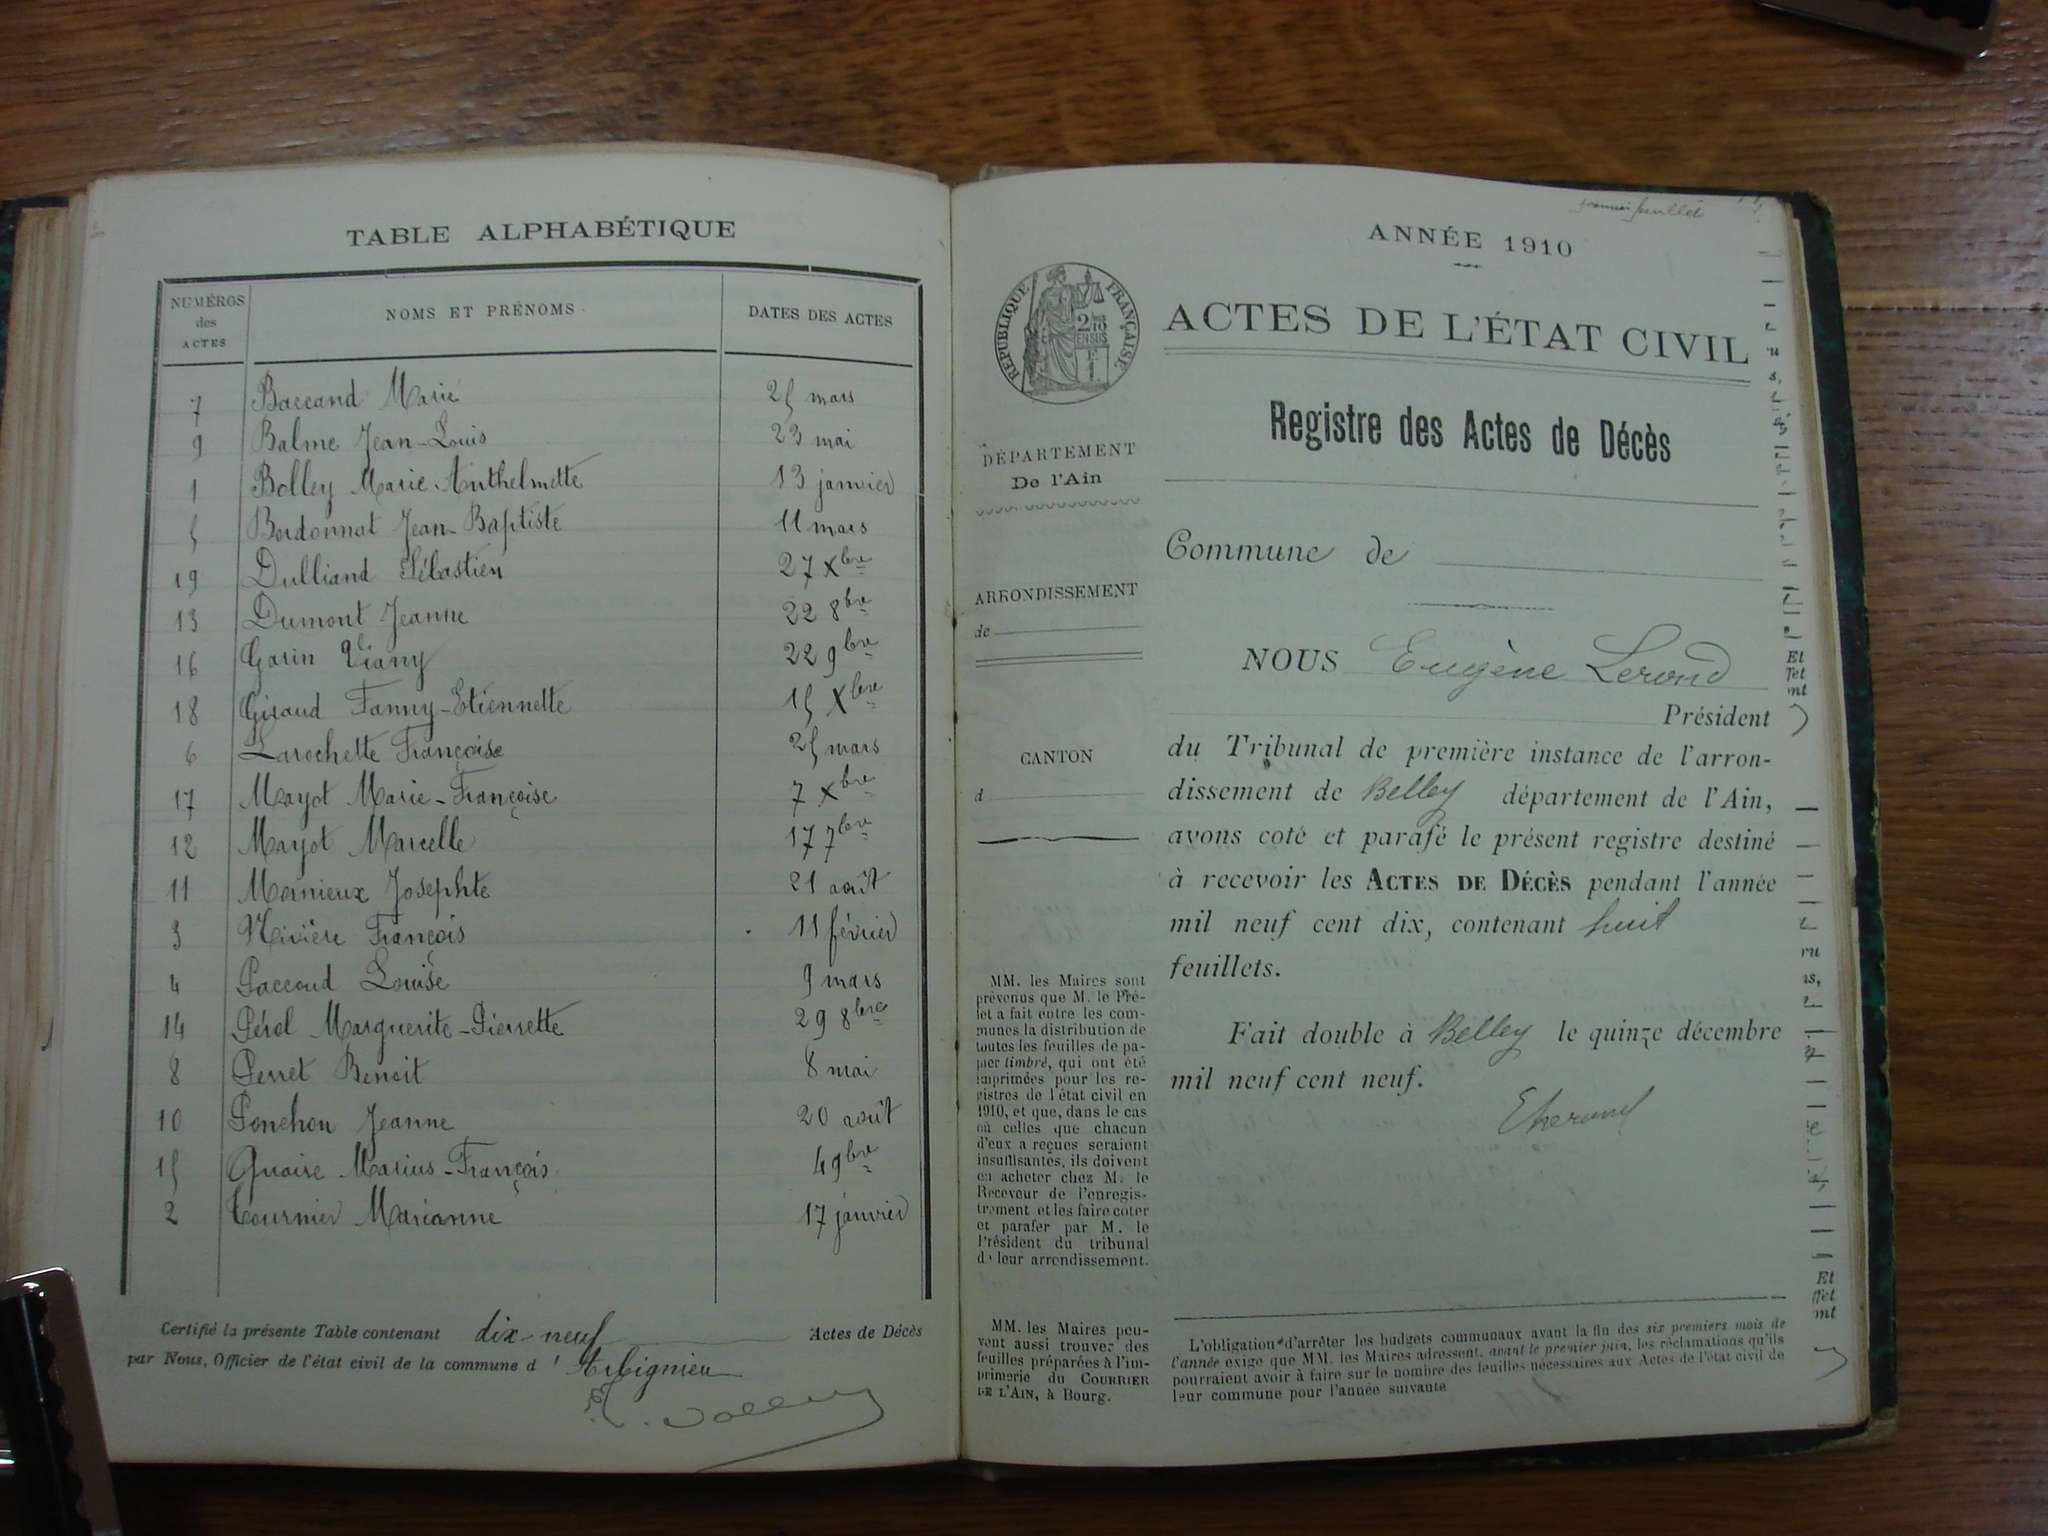 TABLE ALPHABÉTIQUE
NUMÉROS des ACTES NOMS ET PRÉNOMS DATES DES ACTES
7 Baccand Marie 25 mars
9 Balme Jean-Louis 23 mai
1 Bolley Marie-Anthelmette 13 janvier
5 Bordonnat Jean-Baptiste 11 mars
19 Dulliand Sébastien 27 Xbre
13 Dumont Jeanne 22 8bre
16 Garin Viany 22 9bre
18 Giraud Fanny-Etiennette 15 Xbre
6 Larochette Françoise 25 mars
17 Mayot Marie-Françoise 7 Xbre
12 Mayot Marcelle 17 7bre
11 Mornieux Josephte 21 août
3 Nivière François 11 février
4 Paccoud Louise 9 mars
14 Pérol Marguerite-Pierrette 29 8bre
8 Perret Benoit 8 mai
10 Ponchon Jeanne 20 août
15 Quaire Marius-François 4 9bre
2 Tournier Marianne 17 janvier
Certifié la présente Table contenant dix-neuf Actes de Décès
par Nous, Officier de l'état civil de la commune d'Arbignieu
premier feuillet
ANNÉE 1910
RÉPUBLIQUE FRANÇAISE
2/10 EN SUS
1 F.
ACTES DE L'ÉTAT CIVIL
Registre des Actes de Décès
DÉPARTEMENT
De l'Ain
Commune de
ARRONDISSEMENT
de
NOUS Eugène Lerond
Président
CANTON
d
du Tribunal de première instance de l'arron-
dissement de Belley département de l'Ain,
avons coté et parafé le présent registre destiné
à recevoir les ACTES DE DÉCÈS pendant l'année
mil neuf cent dix, contenant huit
feuillets.
Fait double à Belley le quinze décembre
mil neuf cent neuf.
MM. les Maires sont
prévenus que M. le Pré-
fet a fait entre les com-
munes la distribution de
toutes les feuilles de pa-
pier timbré, qui ont été
imprimées pour les re-
gistres de l'état civil en
1910, et que, dans le cas
où celles que chacun
d'eux a reçues seraient
insuffisantes, ils doivent
en acheter chez M. le
Receveur de l'enregis-
trement et les faire coter
et parafer par M. le
Président du tribunal
de leur arrondissement.
MM. les Maires peu-
vent aussi trouver des
feuilles préparées à l'im-
primerie du COURRIER
DE L'AIN, à Bourg.
L'obligation d'arrêter les budgets communaux avant la fin des six premiers mois de
l'année exige que MM. les Maires adressent, avant le premier juin, les réclamations qu'ils
pourraient avoir à faire sur le nombre des feuilles nécessaires aux Actes de l'état civil de
leur commune pour l'année suivante